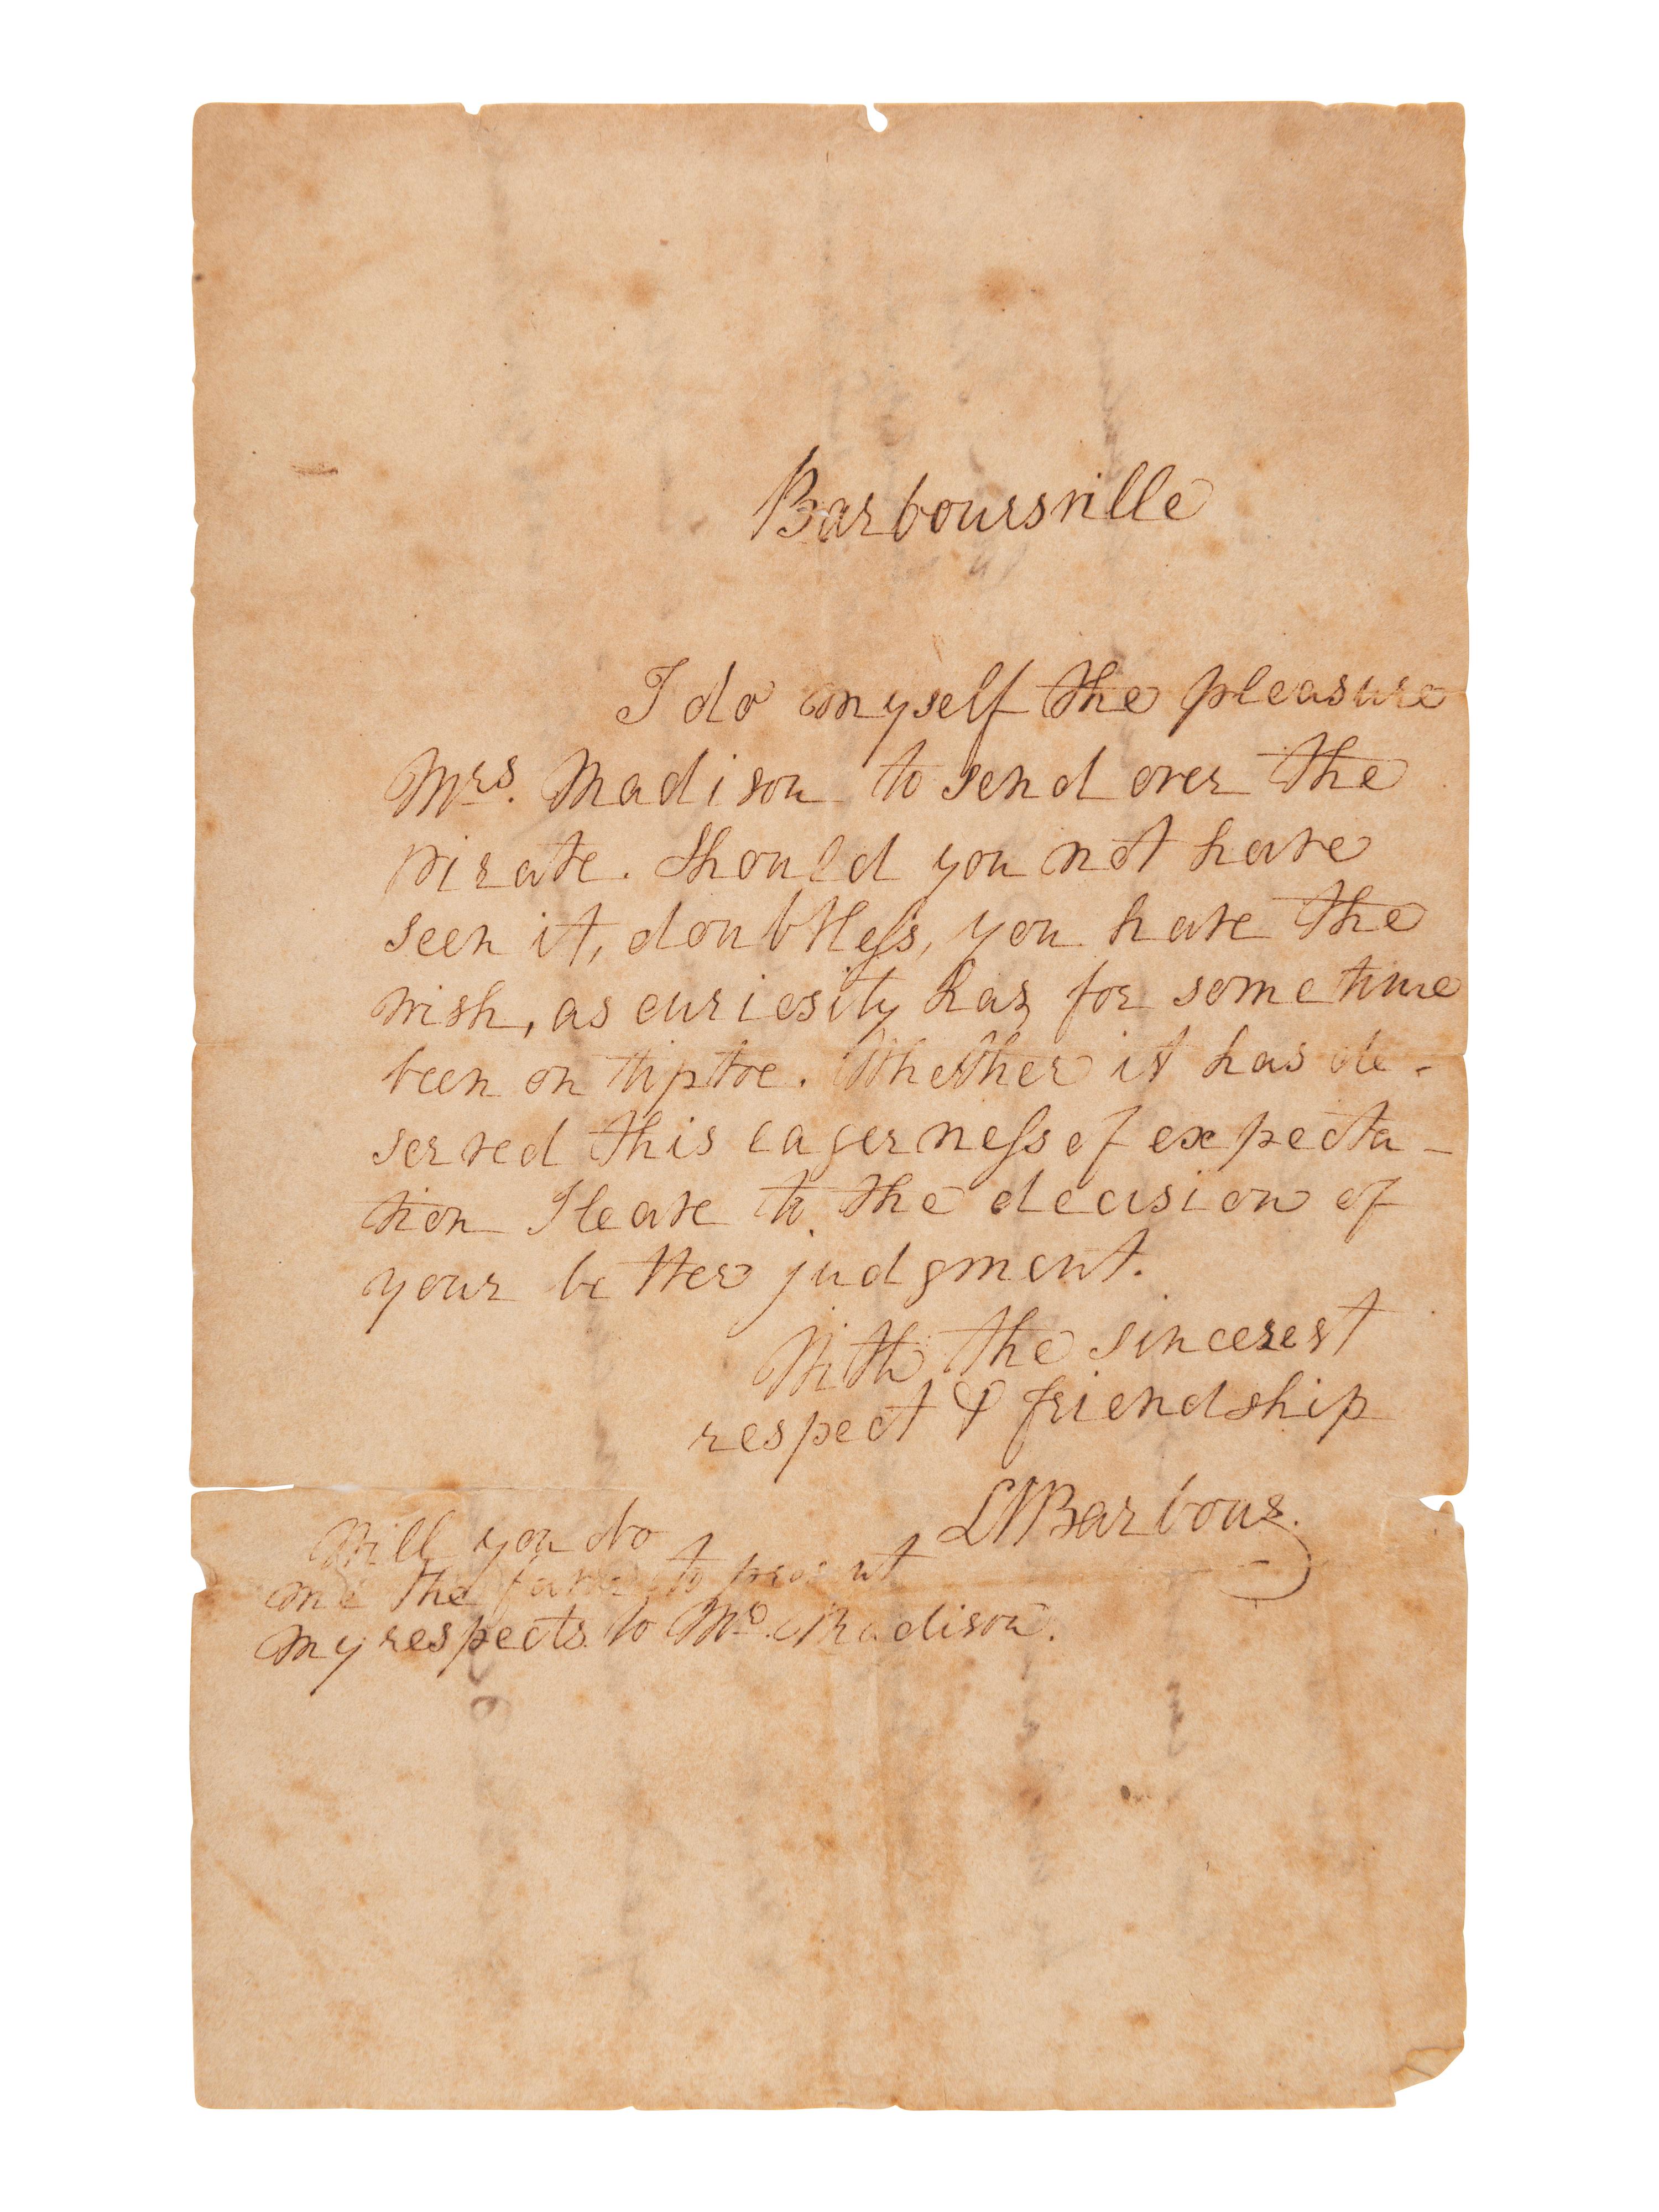 Barboursville
I do myself the pleasure
Mrs. Madison to send over the
pirate. Should you not have
seen it, doubtless, you have the
wish, as curiosity has for some time
been on tiptoe. Whether it has de-
served this eagerness of expecta-
tion I leave to the decision of
your better judgment.
With the sincerest
respect & friendship
LTBarbour.
Will you do
me the favor to present
my respects to Mr. Madison.